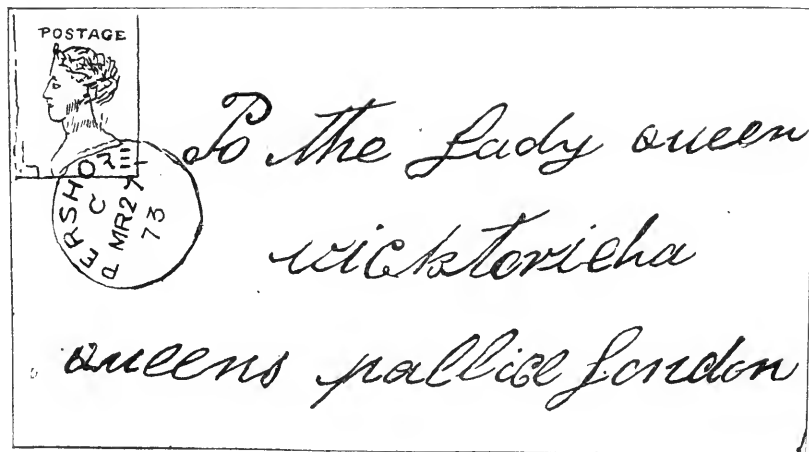 POSTAGE
PERSHORE
C
MR27
73
To the Lady queen
wicktoricha
queens pallice London